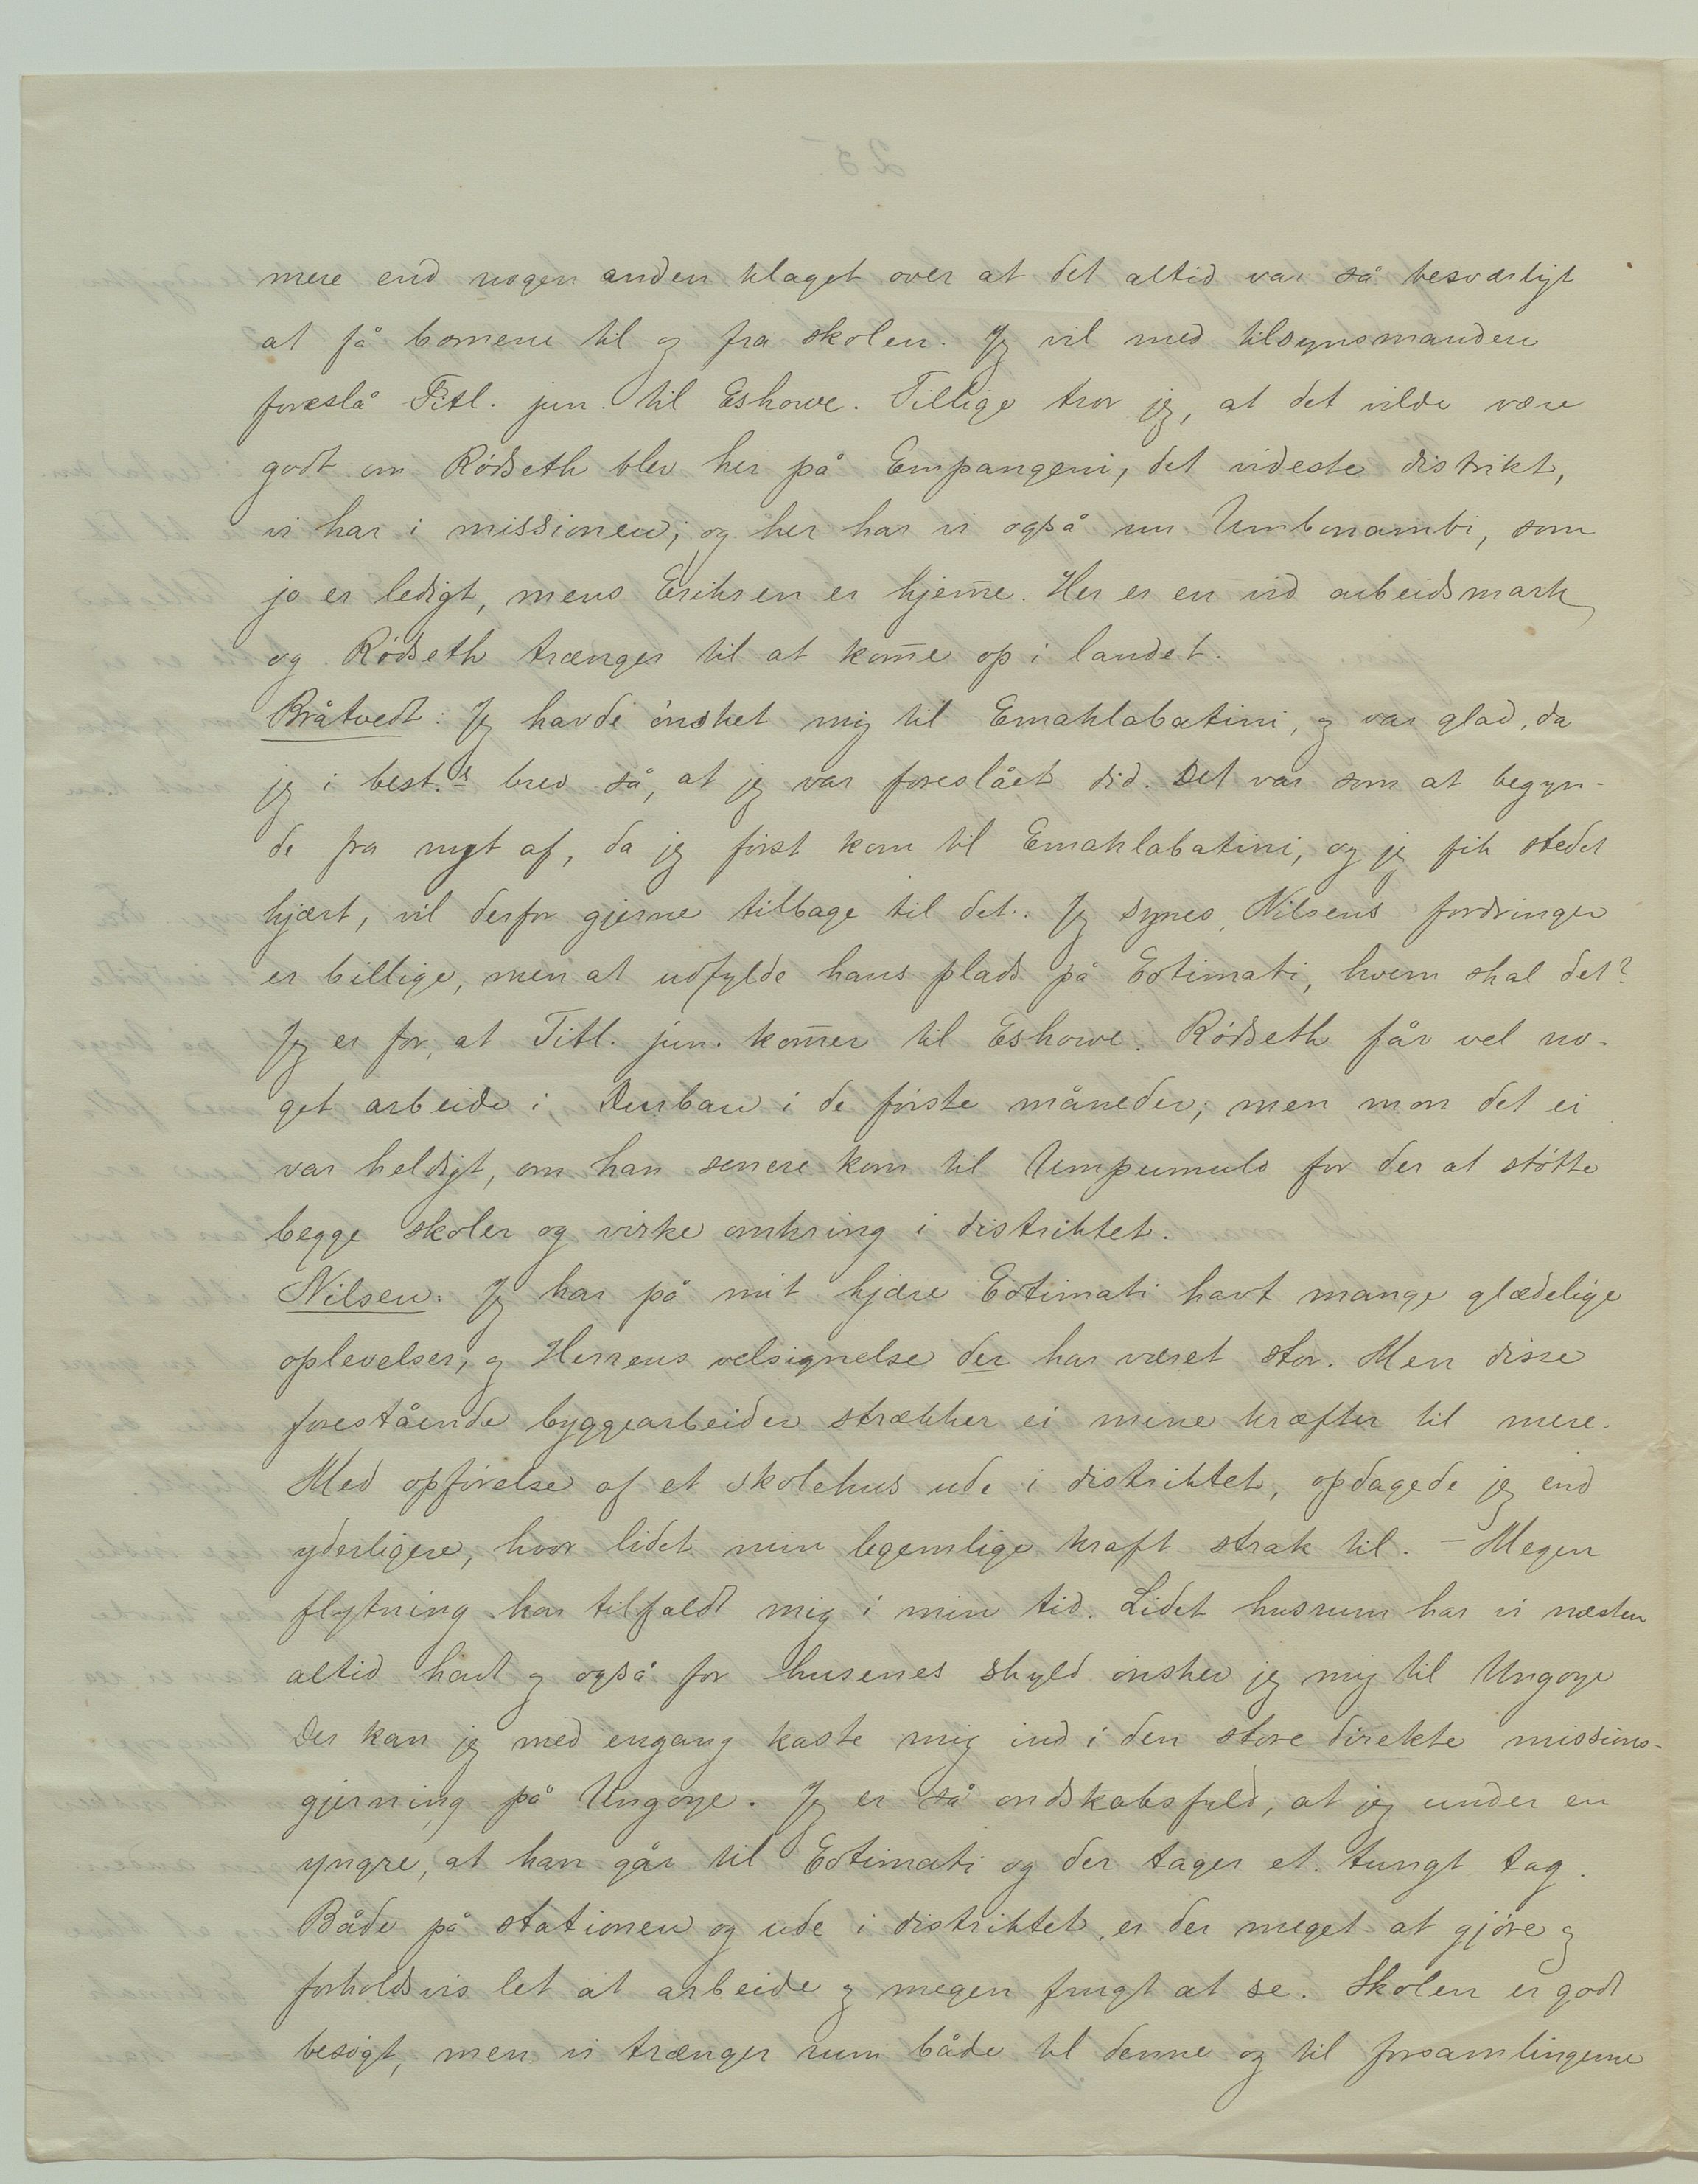 mere end nogen anden klaget over at det altid var så besværligt
at få bornene til og fra skolen. Jeg vil med tilsynsmanden
foreslå Titl. jun. til Eshowe. Tillige tror jeg, at det vilde være
godt om Rødseth blev her på Empangeni, det videste distrikt,
vi har i missionen; og her har vi også nu Umbonambi, som
jo er ledigt, mens Eriksen er hjem̅e. Her er en vid arbeidsmark
og Rødseth trænger til at kom̅e op i landet.
Bråtvedt: Jeg havde ønsket mig til Emahlabatini, og var glad, da
jeg i best.s brev så, at jeg var foreslået did. Det var som at begyn-
de fra nyt af, da jeg først kom til Emahlabatini, og jeg fik stedet
kjært, vil derfor gjerne tilbage til det. Jeg synes Nilsens fordringer
er billige, men at udfylde hans plads på Eotimati, hvem skal det?
Jeg er for, at Titl. jun. kom̅er til Eshowe. Rødseth får vel no-
get arbeide i Durban i de første måneder; men mon det ei
var heldigt, om han senere kom til Umpumulo for der at støtte
begge skoler og virke omkring i distriktet.
Nilsen: Jeg har på mit kjære Eotimati havt mange glædelige
oplevelser, og Herrens velsignelse der har været stor. Men disse
forestående byggearbeider strækker ei mine kræfter til mere.
Med opførelse af et skolehus ude i distriktet, opdagede jeg end
yderligere, hvor lidet min legemlige kraft strak til. – Megen
flytning har tilfaldt mig i min tid. Lidet husrum har vi næsten
altid havt og også for husenes skyld ønsker jeg mig til Ungoye
Der kan jeg med engang kaste mig ind i den store direkte missions-
gjerning på Ungoye. Jeg er så ondskabsfuld, at jeg under en
yngre, at han går til Eotimati og der tager et tungt tag.
Både på stationen og ude i distriktet, er der meget at gjøre og
forholdsvis let at arbeide og megen frugt at se. Skolen er godt
besøgt, men vi trænger rum både til denne og til forsamlingerne